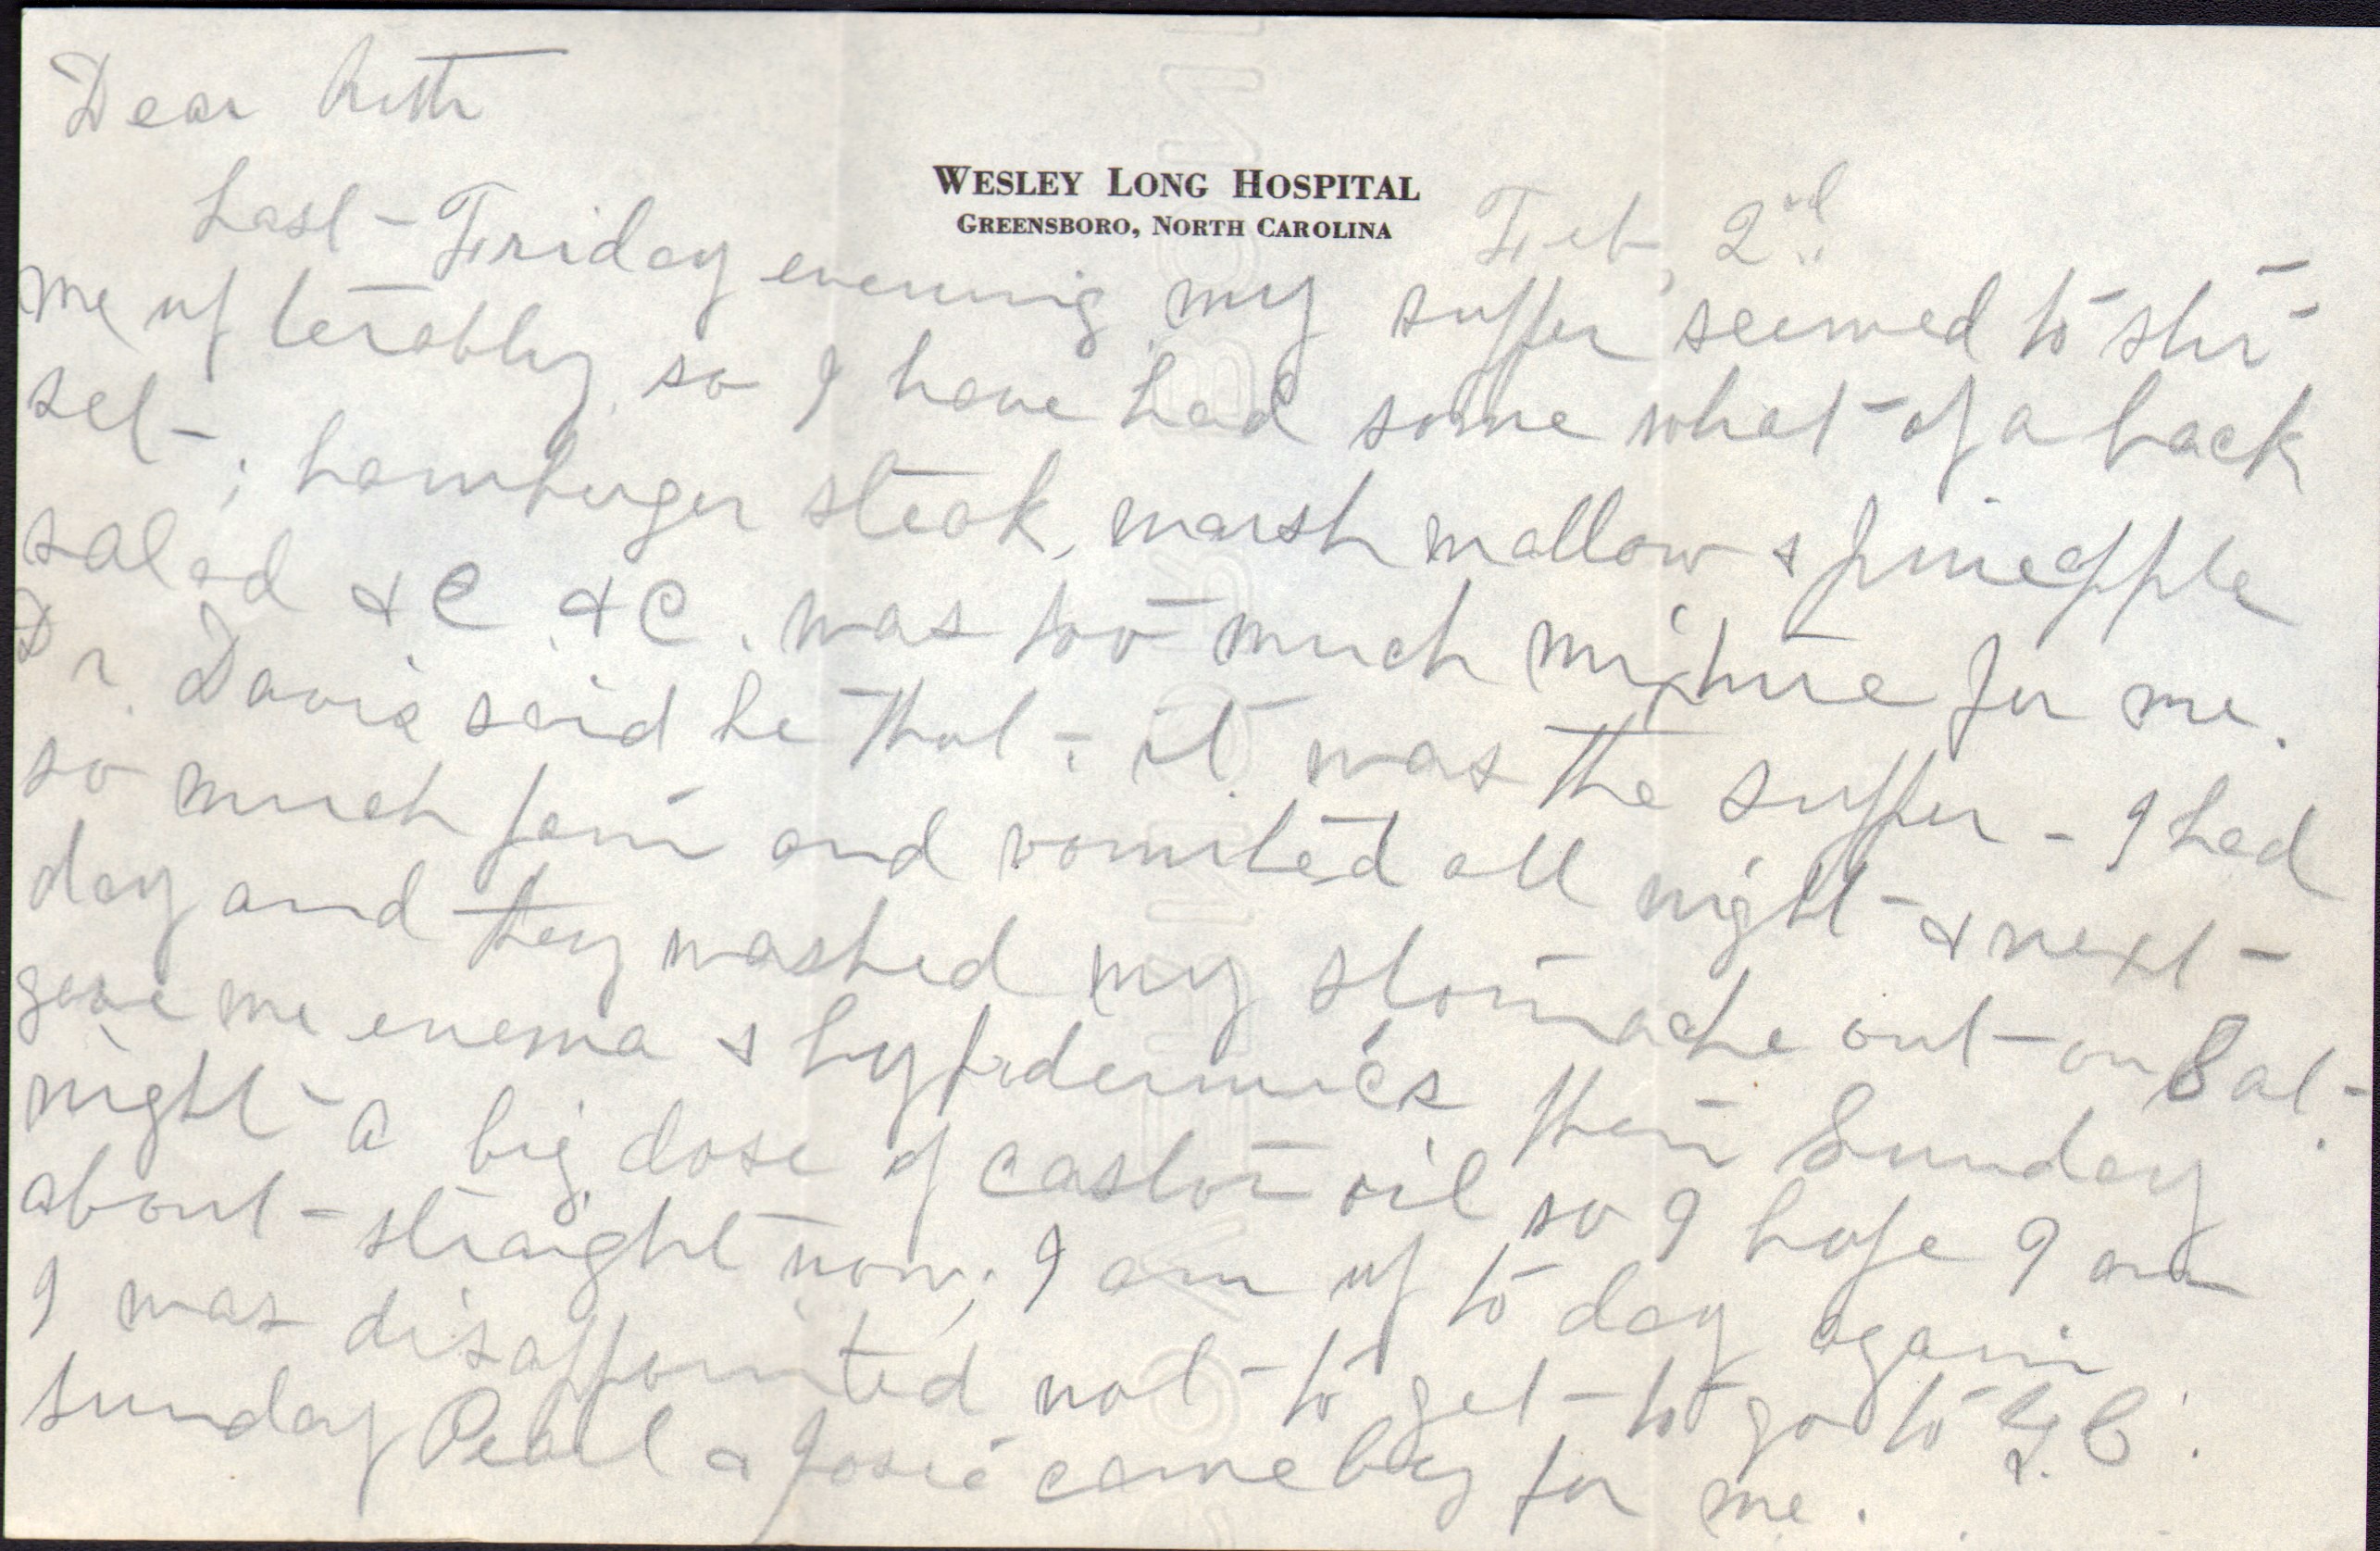 Dear Ruth
WESLEY LONG HOSPITAL
GREENSBORO, NORTH CAROLINA
Feb, 2nd
Last Friday evening my supper seemed to stir
me up terabbly, so I have had some what of a back
set; hamburger steak, marsh mallow & pineapple
salad &C &C. was too much mixture for me.
Dr. Davis said he thot it was the supper - I had
so much pain and vomited all night & next
day and they washed my stomache out on Sat.
gave me enema & hypodermics then Sunday
night a big dose of castor oil so I hope I am
about straight now; I am up to day again
I was disappointed not to get to go to G.C.
sunday Pearl & Josie came by for me.